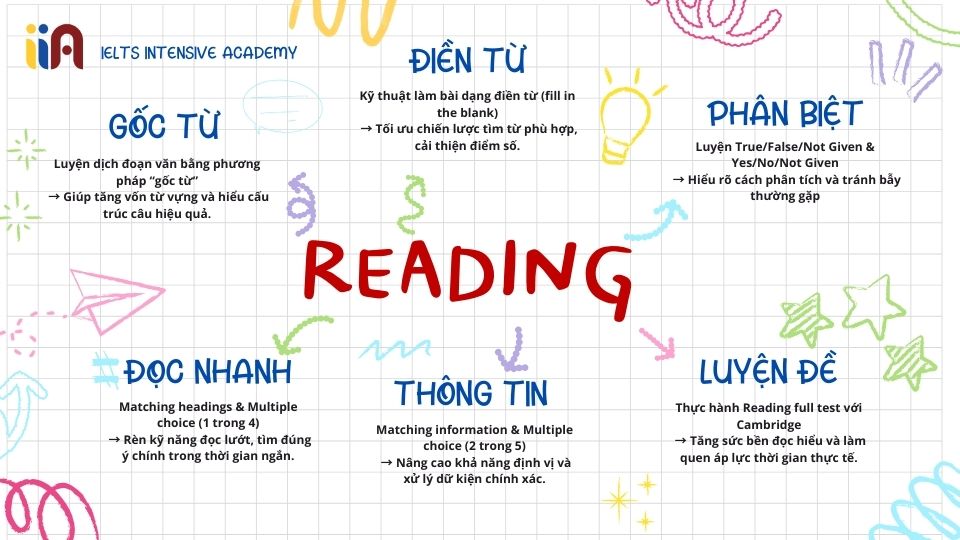 iiA IELTS INTENSIVE ACADEMY
GỐC TỪ
Luyện dịch đoạn văn bằng phương
pháp “gốc từ”
→ Giúp tăng vốn từ vựng và hiểu cấu
trúc câu hiệu quả.
ĐIỀN TỪ
Kỹ thuật làm bài dạng điền từ (fill in
the blank)
→ Tối ưu chiến lược tìm từ phù hợp,
cải thiện điểm số.
PHÂN BIỆT
Luyện True/False/Not Given &
Yes/No/Not Given
→ Hiểu rõ cách phân tích và tránh bẫy
thường gặp
READING
ĐỌC NHANH
Matching headings & Multiple
choice (1 trong 4)
→ Rèn kỹ năng đọc lướt, tìm đúng
ý chính trong thời gian ngắn.
THÔNG TIN
Matching information & Multiple
choice (2 trong 5)
→ Nâng cao khả năng định vị và
xử lý dữ kiện chính xác.
LUYỆN ĐỀ
Thực hành Reading full test với
Cambridge
→ Tăng sức bền đọc hiểu và làm
quen áp lực thời gian thực tế.